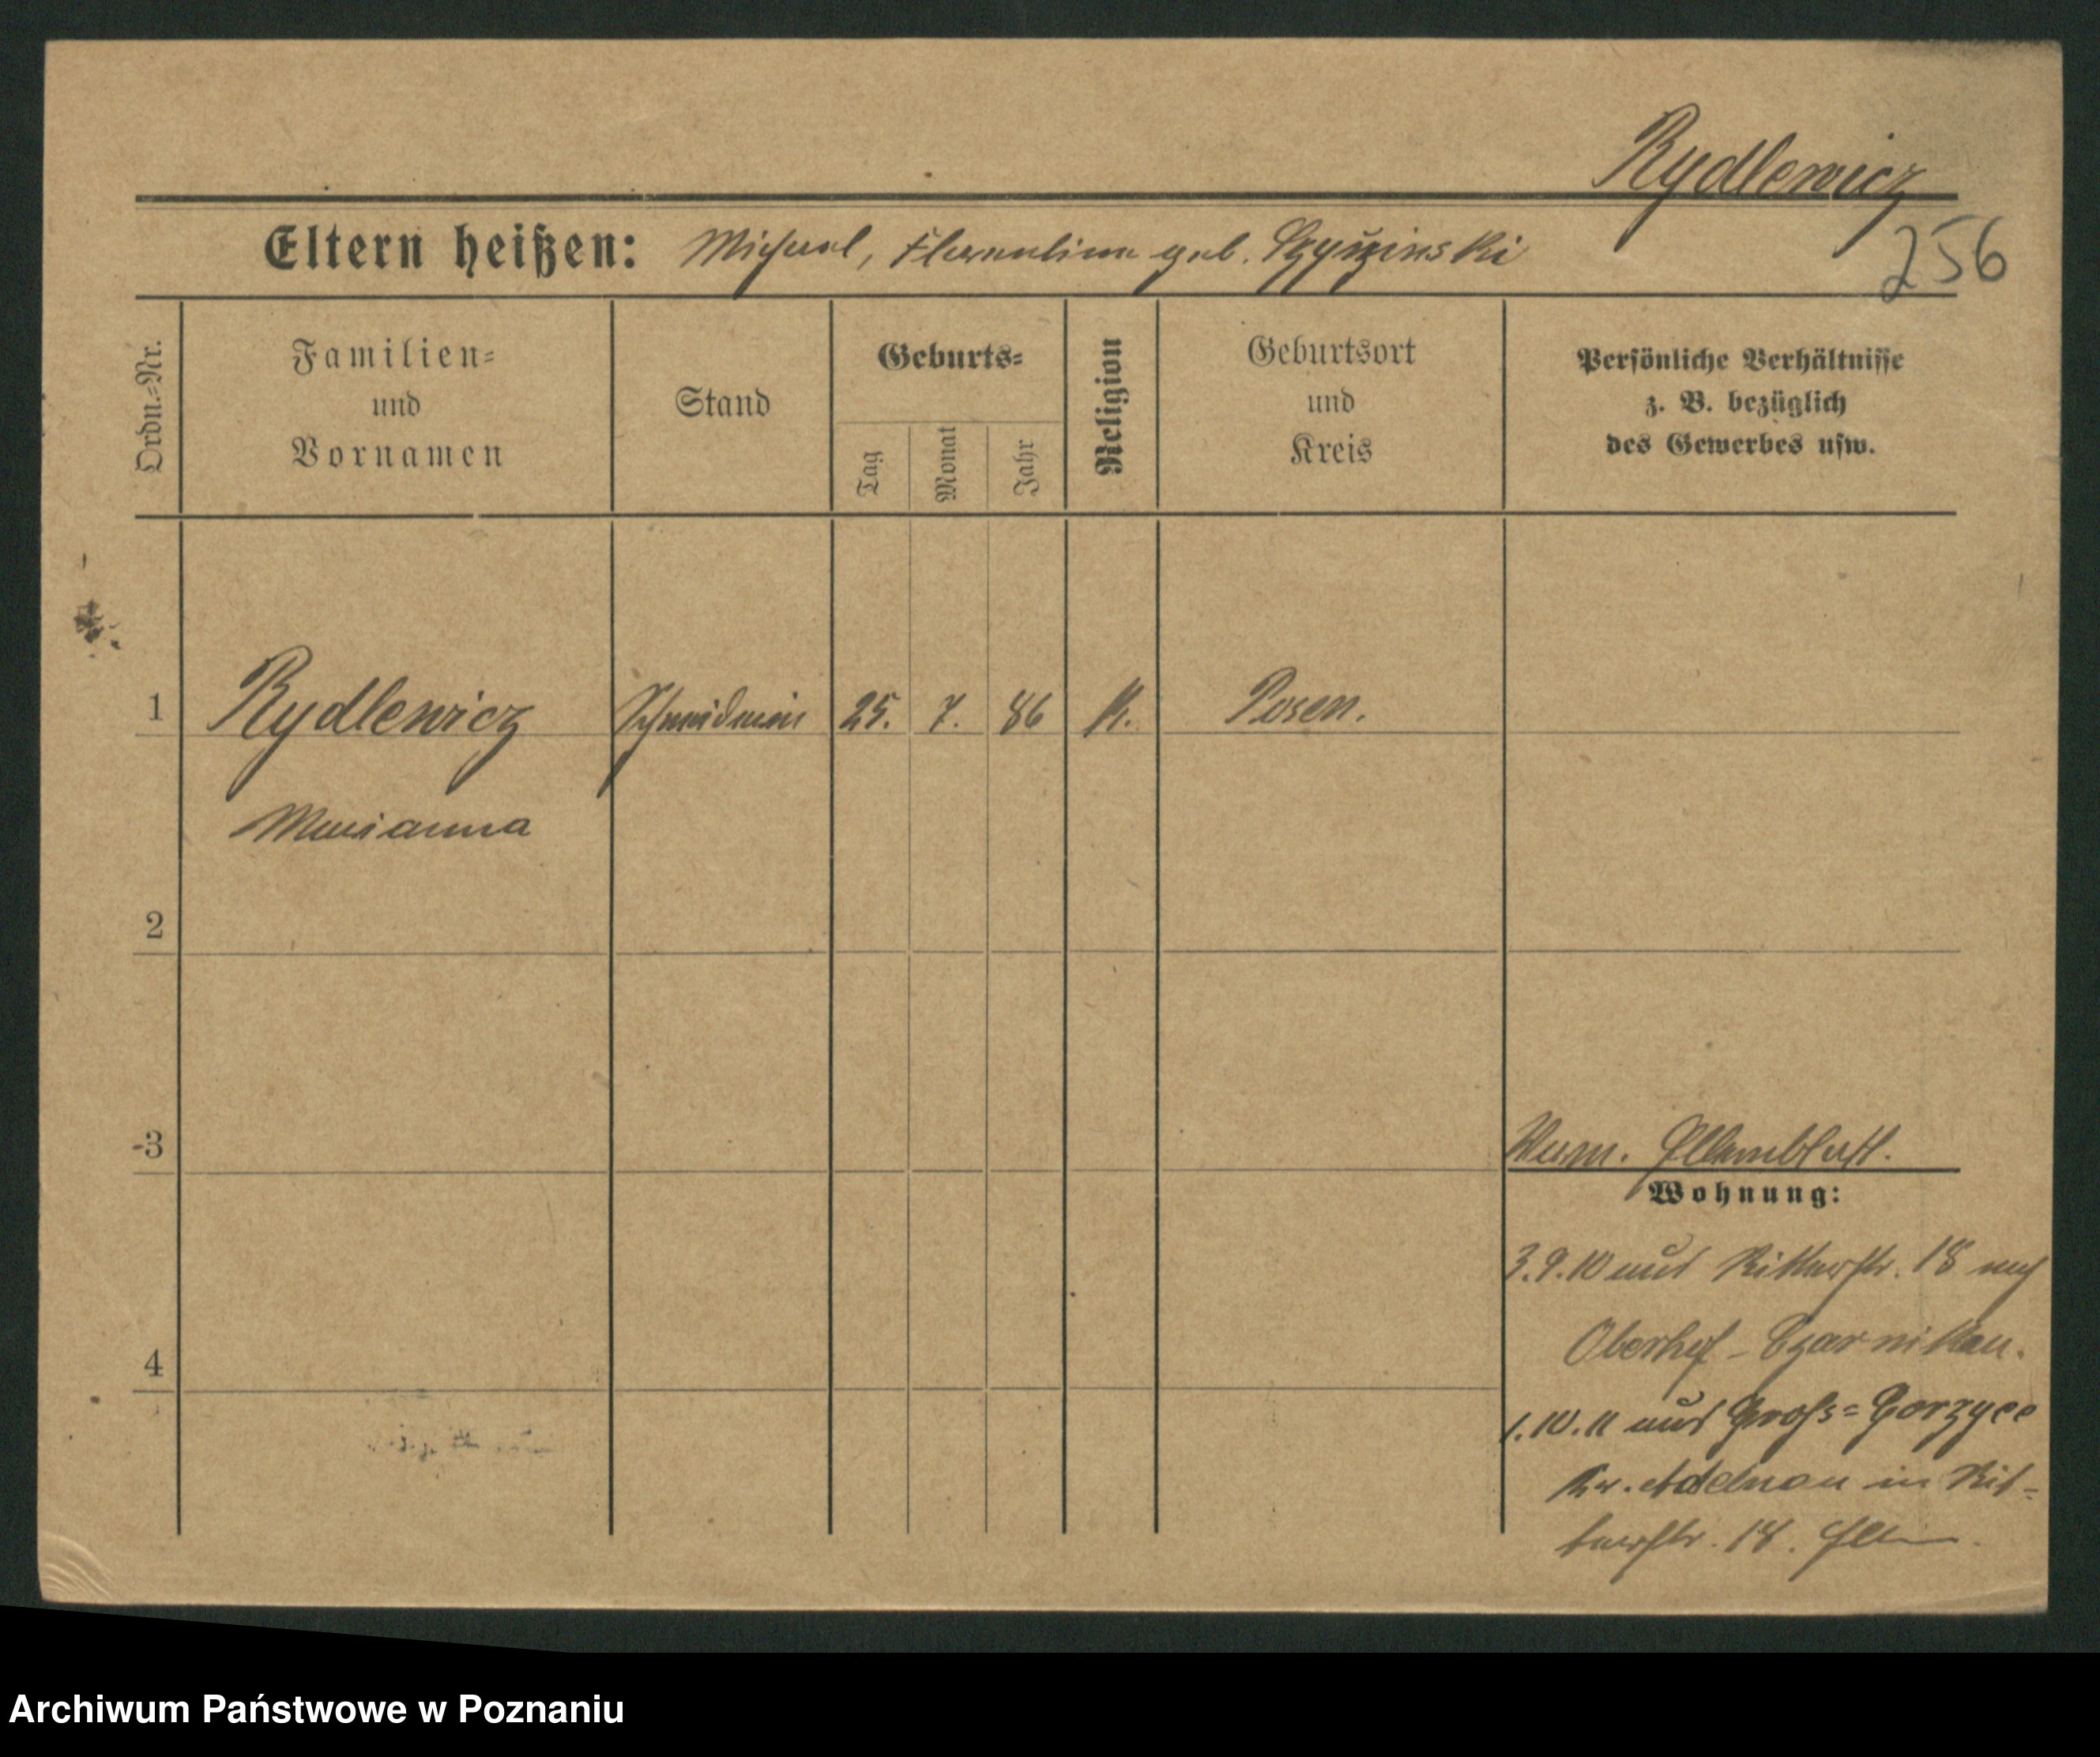 Rydlewicz
256
Eltern heißen: Michael, Florentina geb. Szyszinski
Ordn.=Nr.
Familien=
und
Vornamen
Stand
Geburts=
Tag
Monat
Jahr
Religion
Geburtsort
und
Kreis
Persönliche Verhältnisse
z. B. bezüglich
des Gewerbes usw.
1 Rydlewicz Schneiderin 25. 7. 86 K. Posen.
Marianna
2
3
Elternblatt.
Wohnung:
4
3.9.10 aus Ritterstr. 18 nach
Oberhof - Czarnikau.
1.10.11 aus Gross=Gorzyce
Kr. Adelnau in Rit=
terstr. 18.
Archiwum Państwowe w Poznaniu